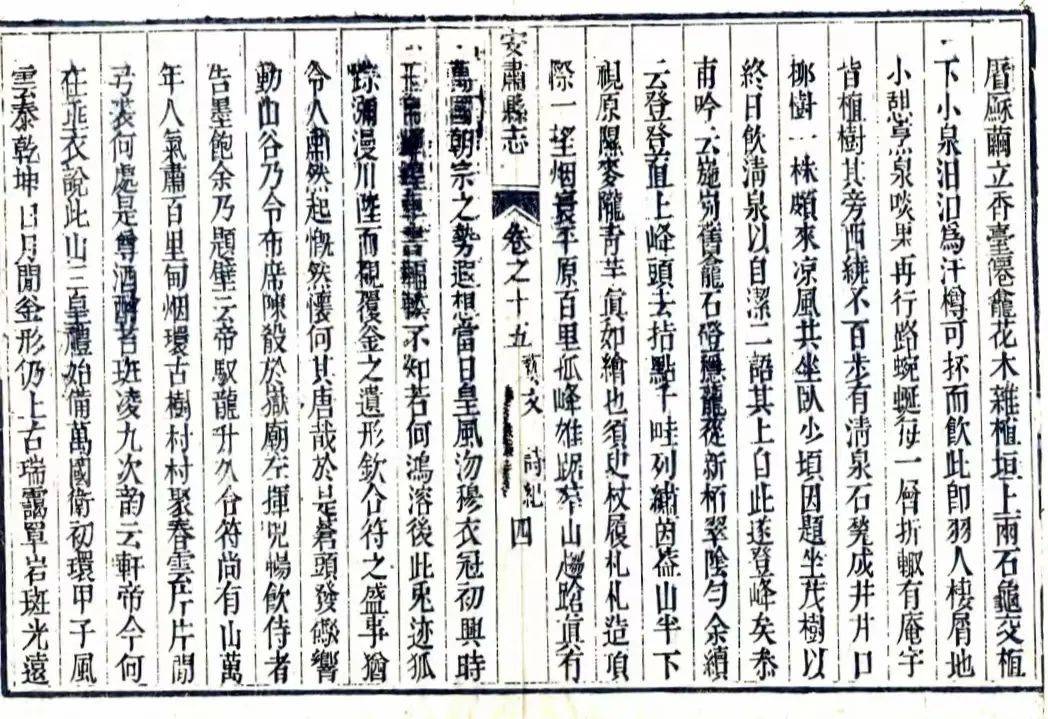 層穌蘭立香臺僊龕花木雜植垣上兩石龜交植
下小泉汨汨為汙樽可抔而飲此卽羽人棲屑地
小憇烹泉啖果再行路蜿蜒每一層折輙有庵宇
皆植樹其旁西繞不百步有清泉石甃成井井口
梛樹一株頗來凉風共坐臥少頃因題坐茂樹以
終日飲清泉以自潔二語其上自此遂登峰矣叅
甫吟云施岢舊龕石磴龍嵸新栢翠陰勻余續
云登登直上峰頭去指點千畦列繡茵葢山半下
視原隰麥隴青芊眞如繪也須臾杖履札札造項
際一望烟景平原百里孤峰雄踞萃山趨蹌眞有
安肅縣志 卷之十五 藝文 詩紀 四
萬國朝宗之勢遐想當日皇風沕穆衣冠初興時
玉帛輝煌車書輻輳不知若何鴻溶後此兎迹狐
踪瀰漫川陸而覩覆釜之遺形欽合符之盛事猶
令人肅然起慨然懷何其唐哉於是蒼頭發礮響
動山谷乃令布席陳殽於嶽廟左揮兕暢飲侍者
告墨飽余乃題壁云帝馭龍升久合符尚有山萬
年人氣肅百里甸烟環古樹村村聚春雲片片閒
弓裘何處是尊酒酹者斑凌九次韵云軒帝今何
在垂衣說此山三皇禮始備萬國衛初環甲子風
雲泰乾坤日月閒釜形仍上古瑞靄單岩斑光遠